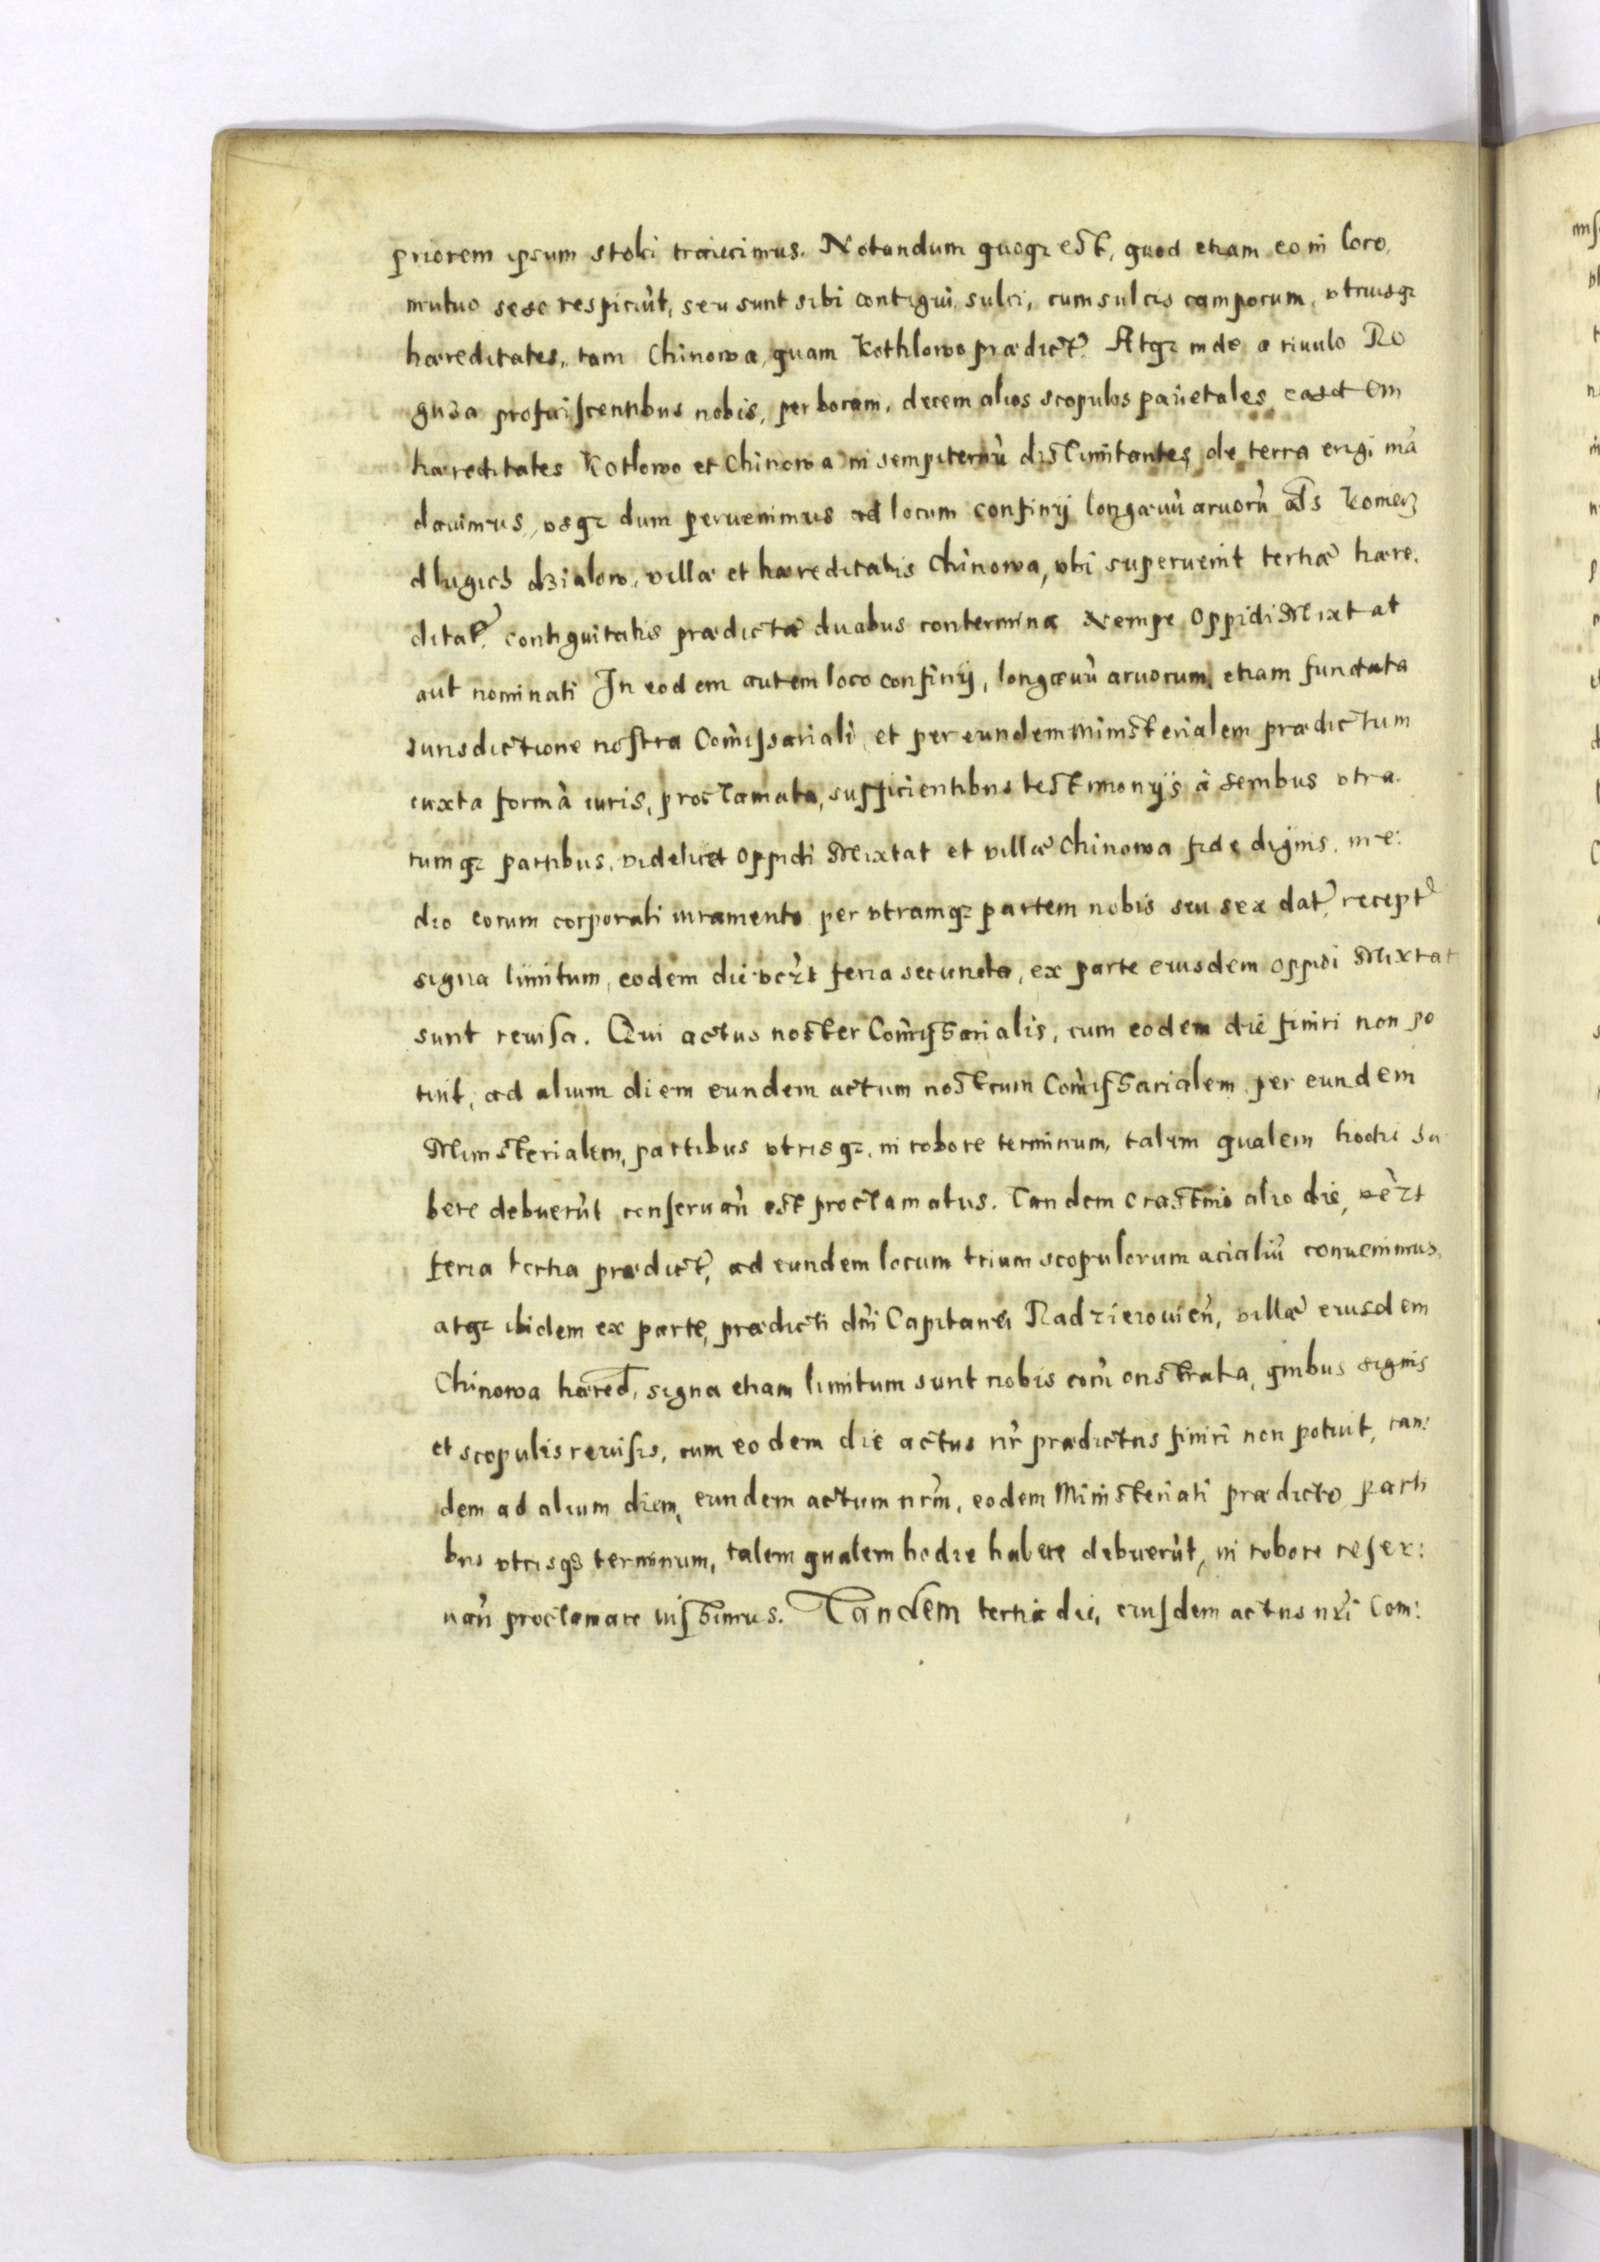 priorem ipsum stoki traiicimus. Notandum quoqȝ est, quod etiam eo in loco,
mutuo sese respiciūt, seu sunt sibi contigui sulci, cum sulcis camporum, vtriusqȝ
hæreditates, tam Chinowa, quam Kothlowo prædict. Atqȝ inde a riuulo Ro
guza proficiscentibus nobis, per boram, decem alios scopulos parietales easdem
hæreditates Kotlowo et Chinowa in sempiternū distimitantes de terra erigi mā
dauimus, vsqȝ dum peruenimus ad locum confinij longæuū aruorū als
dlugich dzialow, villæ et hæreditatis Chinowa, vbi superuenit tertiæ hære.
ditat contiguitatis prædictæ duabus contermina Nempe Oppidi Mixtat
aut nominati In eodem autem loco confinij, longæuū aruorum, etiam fundata
iurisdictione nostra Comissariali, et per eundem ministerialem prædictum
iuxta formā iuris, proclamata, sufficientibus testimonijs à senibus vtra.
rumqȝ partibus, videlicet Oppidi Mixtat et villæ Chinowa fide dignis. me:
dio eorum corporali iuramento per vtramqȝ partem nobis seu sex dat, recept
signa limitum, eodem die vczt feria secunda, ex parte eiusdem oppidi Mixtat
sunt reuisa. Qui actus noster Comissarialis, cum eodem die finiri non po
tuit, ad alium diem eundem actum nostrum Comissarialem per eundem
Ministerialem, partibus vtrisqȝ, in robore terminum, talem qualem hodie ha
bere debuerūt conseruan̄ est proclamatus. Tandem crastino alio die, vczt
feria tertia prædict, ad eundem locum trium scopulorum acialiū conuenimus,
atqȝ ibidem ex parte, prædicti dn̄i Capitanei Radzieiouien̄, villæ eiusdem
Chinowa hæred, signa etiam limitum sunt nobis com̄onstrata, quibus signis
et scopulis reuisis, cum eodem die actus nr̄ prædictus finiri non potuit, tan:
dem ad alium diem, eundem actum nrm̄, eodem Ministeriali prædicto parti
bus vtrisqȝ terminum, talem qualem hodie habere debuerūt, in robore reser:
uan̄ proclamare iussimus. Tandem tertia die, eiusdem actus nr̄i Com: